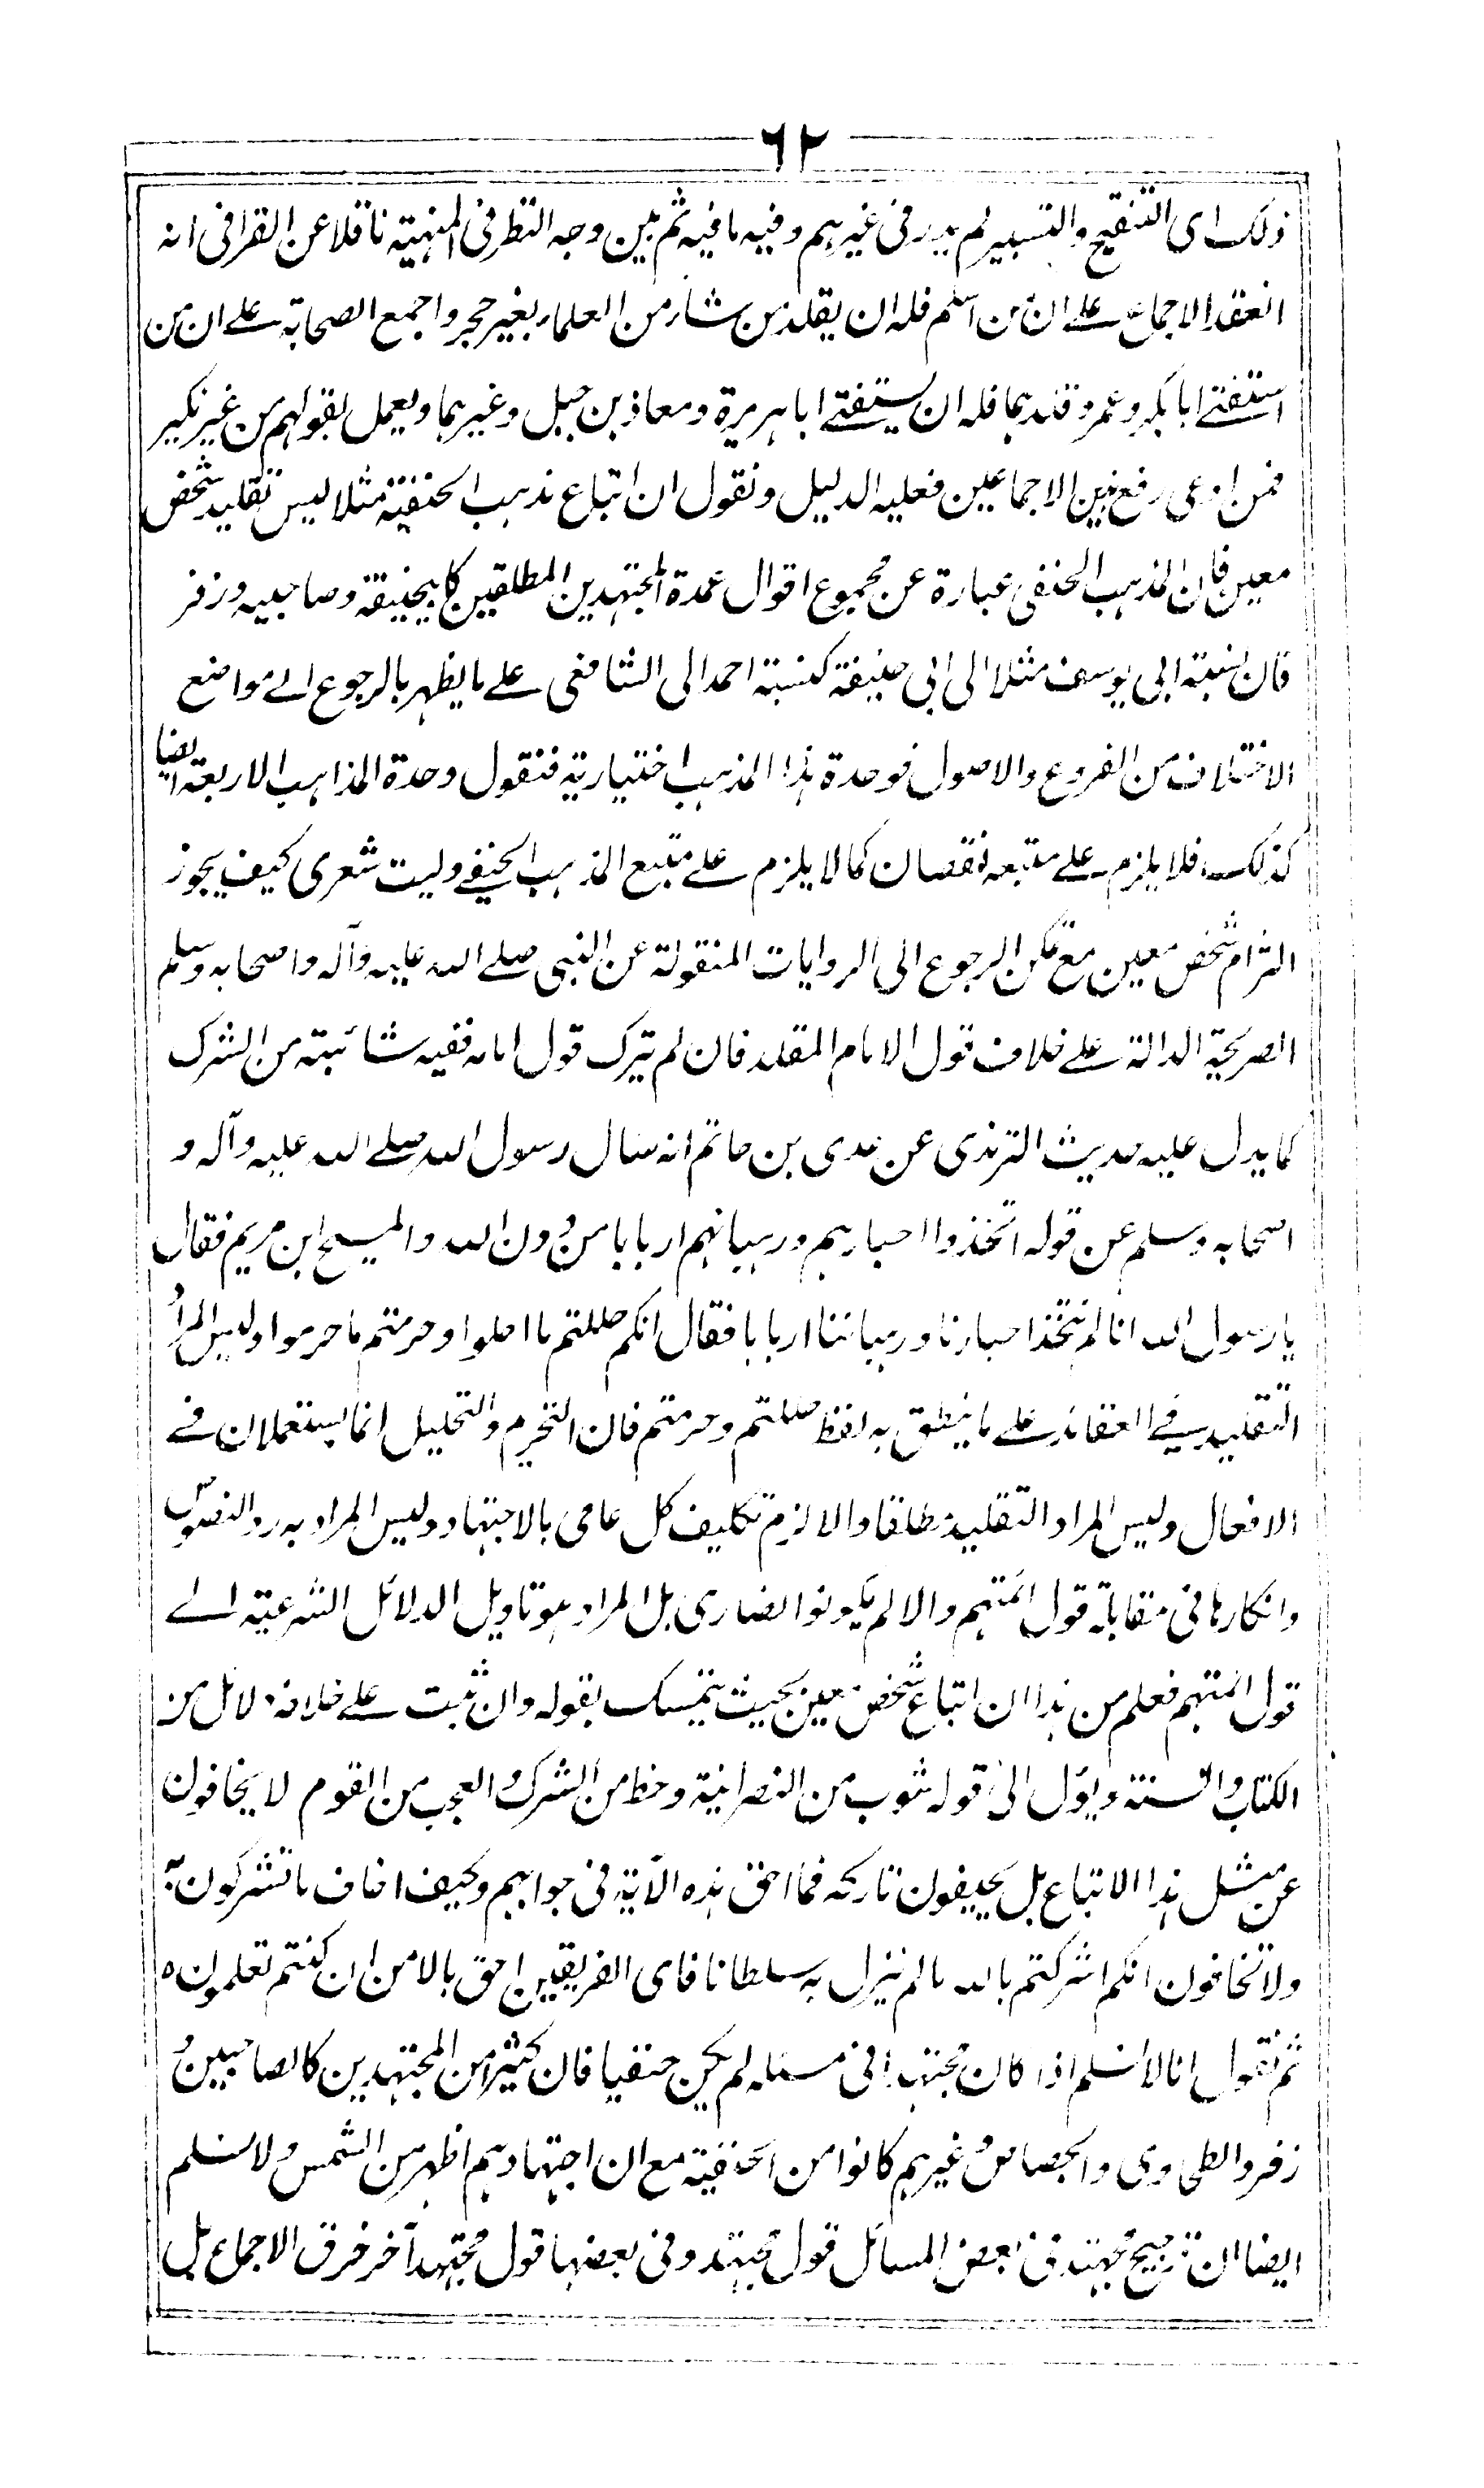 ٦٢
ذلك اى التنقيح والتسبير لم يدر فى غيرهم وفيه ما فيه ثم بين وجه النظر فى المنهيته ناقلا عن القرافى انه
انعقد الاجماع على ان من اسلم فله ان يقلد من شاء من العلماء بغير حجر واجمع الصحابة على ان من
استفتى ابا بكر وعمر وقلدهما فله ان يستفتى ابا هريرة ومعاذ بن جبل وغيرهما ويعمل بقولهم من غير نكير
فمن ادعى رفع هذين الاجماعين فعليه الدليل ونقول ان اتباع مذهب الحنفية مثلا ليس تقليد شخص
معين فان المذهب الحنفى عبارة عن مجموع اقوال عمدة المجتهدين المطلقين كابيحنيفة وصاحبيه وزفر
فان نسبة ابى يوسف مثلا الى ابى حنيفة كنسبة احمد الى الشافعى على ما يظهر بالرجوع الى مواضع
الاختلاف من الفروع والاصول فوحدة هذا المذهب اختيارية فنقول وحدة المذاهب الاربعة ايضا
كذلك فلا يلزم على متبعه نقصان كما لا يلزم على متبع المذهب الحنفى وليت شعرى كيف يجوز
التزام شخص معين مع تمكن الرجوع الى الروايات المنقولة عن النبى صلى الله عليه وآله واصحابه وسلم
الصريحة الدالة على خلاف قول الامام المقلد فان لم يترك قول امامه ففيه شائبة من الشرك
كما يدل عليه حديث الترمذى عن عدى بن حاتم انه سال رسول الله صلى الله عليه وآله و
اصحابه وسلم عن قوله اتخذوا احبارهم ورهبانهم اربابا من دون الله والمسيح ابن مريم فقال
يا رسول الله انا لم نتخذ احبارنا ورهباننا اربابا فقال انكم حللتم ما احلوا وحرمتم ما حرموا وليس المراد
التقليد فى العقائد على ما ينطق به لفظ حللتم وحرمتم فان التحريم والتحليل انما يستعملان فى
الافعال وليس المراد التقليد مطلقا والا لزم تكليف كل عامى بالاجتهاد وليس المراد به رد النصوص
وانكارها فى مقابلة قول ائمتهم والا لم يكونوا نصارى بل المراد هو تاويل الدلائل الشرعية الى
قول ائمتهم فعلم من هذا ان اتباع شخص معين بحيث يتمسك بقوله وان ثبت على خلافه دلائل من
الكتاب والسنة ويؤل الى قوله شوب من النصرانية وحظ من الشرك والعجب من القوم لا يخافون
عن مثل هذا الاتباع بل يخيفون تاركه فما احق هذه الآية فى جوابهم وكيف اخاف ما تشركون به
ولا تخافون انكم اشركتم بالله ما لم ينزل به سلطانا فاى الفريقين احق بالامن ان كنتم تعلمون ه
ثم نقول انا لا نسلم اذا كان مجتهدا فى مسئلة لم يكن حنفيا فان كثيرا من المجتهدين كالصاحبين و
زفر والطحاوى والجصاص وغيرهم كانوا من الحنفية مع ان اجتهادهم اظهر من الشمس ولا نسلم
ايضا ان ترجيح مجتهد فى بعض المسائل قول مجتهد وفى بعضها قول مجتهد آخر خرق الاجماع بل